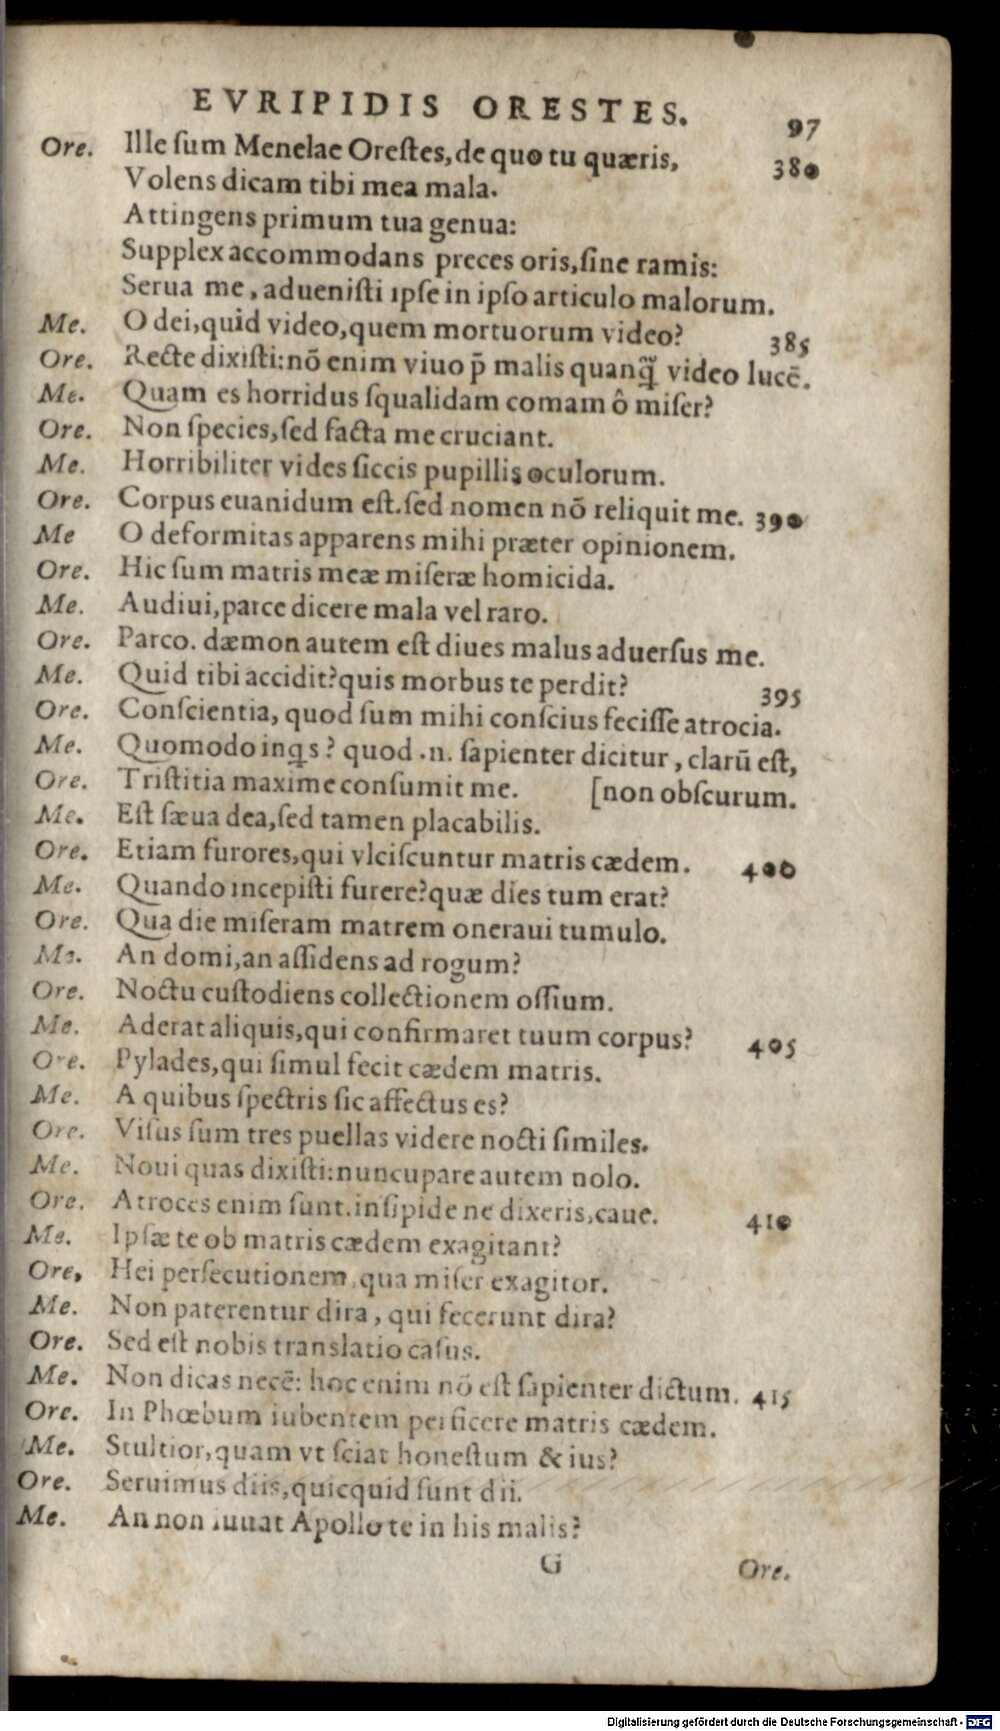 EVRIPIDIS ORESTES. 97
Ore. Ille ſum Menelae Oreſtes, de quo tu quæris, 380
Volens dicam tibi mea mala.
Attingens primum tua genua:
Supplex accommodans preces oris, ſine ramis:
Serua me, adueniſti ipſe in ipſo articulo malorum.
Me. O dei, quid video, quem mortuorum video? 385
Ore. Recte dixiſti: nõ enim viuo p̃ malis quanq̃ video lucẽ.
Me. Quam es horridus ſqualidam comam ô miſer?
Ore. Non ſpecies, ſed facta me cruciant.
Me. Horribiliter vides ſiccis pupillis oculorum.
Ore. Corpus euanidum eſt. ſed nomen nõ reliquit me. 390
Me O deformitas apparens mihi præter opinionem.
Ore. Hic ſum matris meæ miſeræ homicida.
Me. Audiui, parce dicere mala vel raro.
Ore. Parco. dæmon autem eſt diues malus aduerſus me.
Me. Quid tibi accidit? quis morbus te perdit? 395
Ore. Conſcientia, quod ſum mihi conſcius feciſſe atrocia.
Me. Quomodo inꝗs? quod .n. ſapienter dicitur, clarũ eſt,
Ore. Triſtitia maxime conſumit me. [non obſcurum.
Me. Eſt ſæua dea, ſed tamen placabilis.
Ore. Etiam furores, qui vlciſcuntur matris cædem. 400
Me. Quando incepiſti furere? quæ dies tum erat?
Ore. Qua die miſeram matrem oneraui tumulo.
Me. An domi, an aſſidens ad rogum?
Ore. Noctu cuſtodiens collectionem oſſium.
Me. Aderat aliquis, qui confirmaret tuum corpus? 405
Ore. Pylades, qui ſimul fecit cædem matris.
Me. A quibus ſpectris ſic affectus es?
Ore. Viſus ſum tres puellas videre nocti ſimiles.
Me. Noui quas dixiſti: nuncupare autem nolo.
Ore. Atroces enim ſunt. inſipide ne dixeris, caue. 410
Me. Ipſæ te ob matris cædem exagitant?
Ore, Hei perſecutionem, qua miſer exagitor.
Me. Non paterentur dira, qui fecerunt dira?
Ore. Sed eſt nobis translatio caſus.
Me. Non dicas necẽ: hoc enim nõ eſt ſapienter dictum. 415
Ore. In Phœbum iubentem perficere matris cædem.
Me. Stultior, quam vt ſciat honeſtum & ius?
Ore. Seruimus diis, quicquid ſunt dii.
Me. An non iuuat Apollo te in his malis?
G Ore.
Digitalisierung gefördert durch die Deutsche Forschungsgemeinschaft - DFG